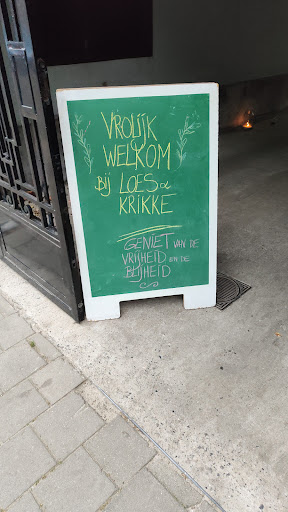 VROLIJK
WELKOM
BIJ LOES &
KRIKKE
GENIET VAN DE
VRIJHEID EN DE
BLIJHEID